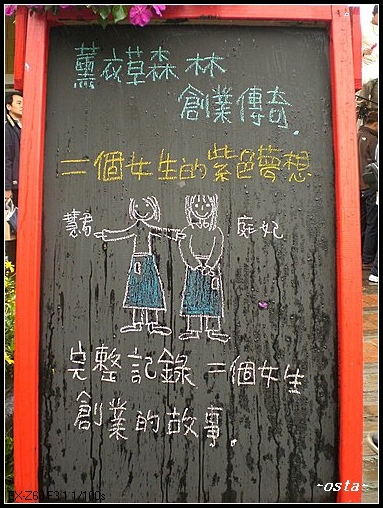 薰衣草森林
創業傳奇.
二個女生的紫色夢想
慧君
庭妃
完整記錄二個女生
創業的故事.
~osta~